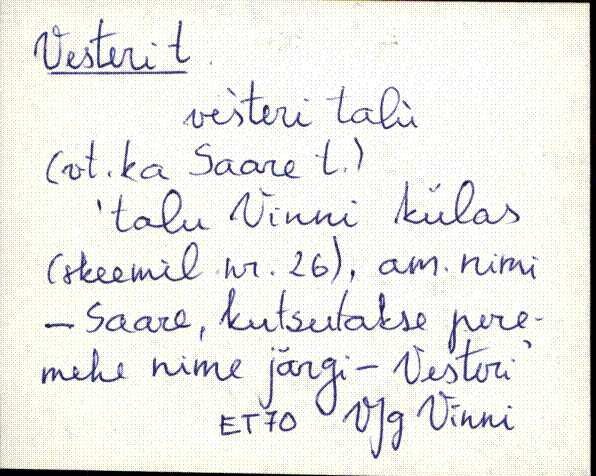 Vesteri t.
vèsteri talù
(vt. ka Saare t.)
'talu Vinni külas
(skeemil nr. 26), am. nimi
– Saare, kutsutakse pere-
mehe nime järgi – Vesteri'
ET70 VJg Vinni